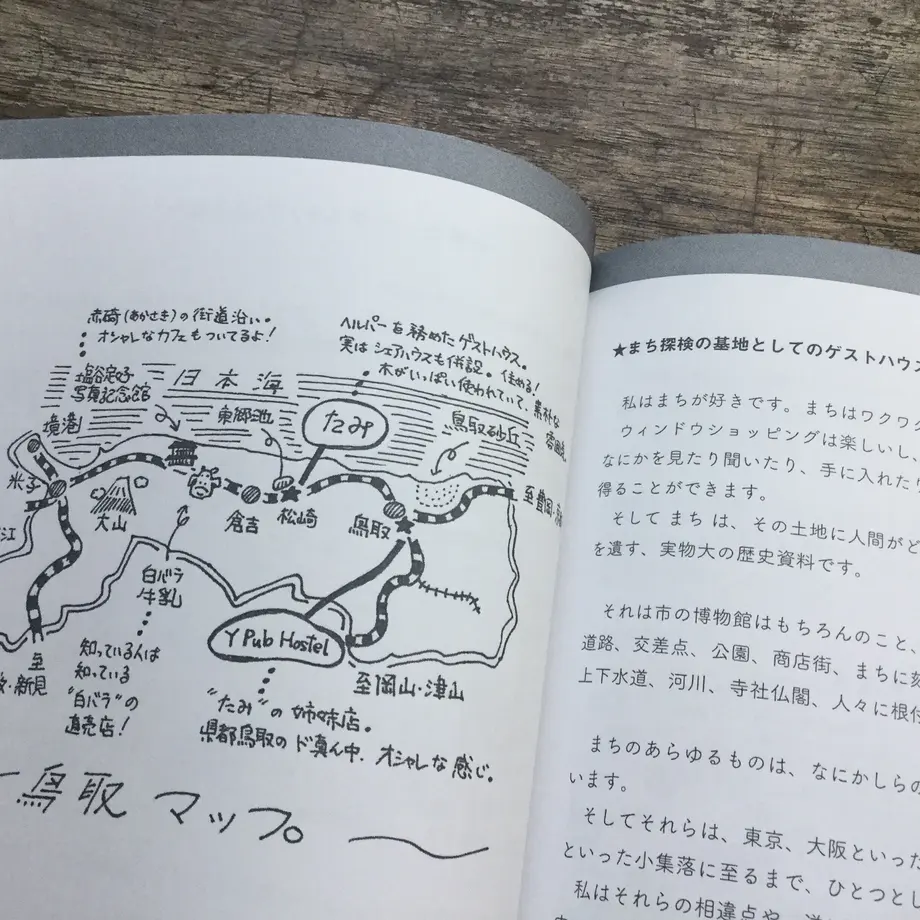 赤碕(あかさき)の街道沿い。
オシャレなカフェもついてるよ!
塩谷定好
写真記念館
日本海
境港
東郷池
ヘルパーを務めたゲストハウス。
実はシェアハウスも併設。住める!
木がいっぱい使われていて、素朴な
雰囲気。
たみ
鳥取砂丘
米子
大山
倉吉
松崎
鳥取
至豊岡・
江
白バラ
牛乳
Y Pub Hostel
至
・新見
知っている人は
知っている
"白バラ"の
直売店!
至岡山・津山
"たみ"の姉妹店。
県都鳥取のド真ん中、オシャレな感じ。
鳥取マップ。
★まち探検の基地としてのゲストハウス
私はまちが好きです。まちはワクワク
ウィンドウショッピングは楽しいし、
なにかを見たり聞いたり、手に入れたり
得ることができます。
そして まち は、その土地に人間がど
を遺す、実物大の歴史資料です。
それは市の博物館はもちろんのこと、
道路、交差点、公園、商店街、まちに刻
上下水道、河川、寺社仏閣、人々に根付
まちのあらゆるものは、なにかしらの
います。
そしてそれらは、東京、大阪といった
といった小集落に至るまで、ひとつとし
私はそれらの相違点や、